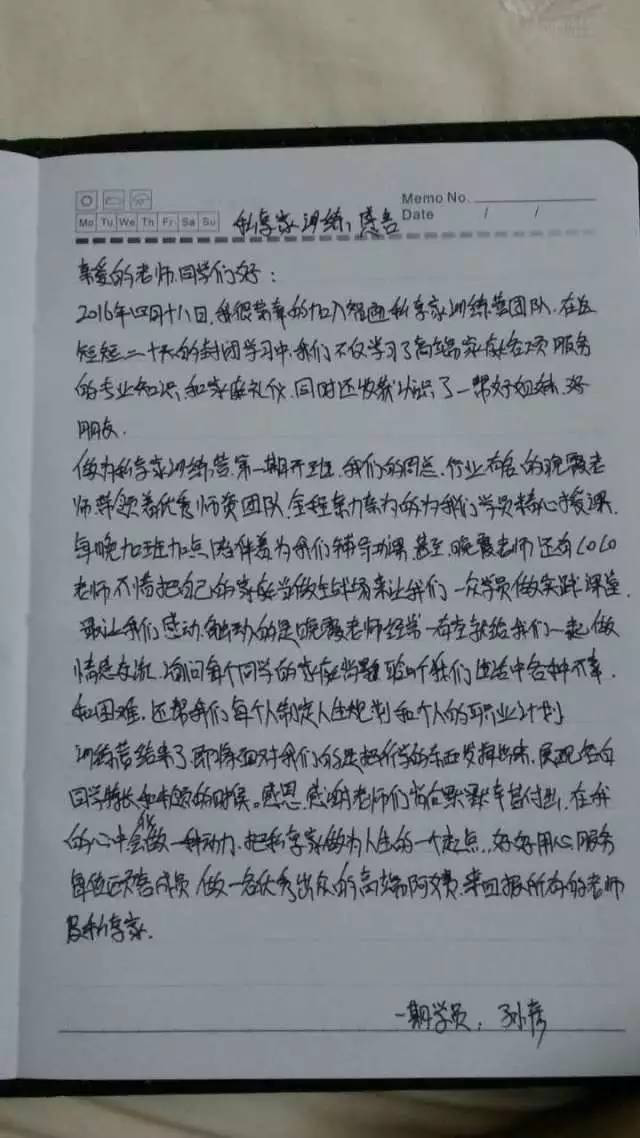 Memo No.
Mo Tu We Th Fr Sa Su
Date / /
私享家训练, 感言
亲爱的老师.同学们好：
2016年四月十八日,我很荣幸的加入智通私享家训练营团队.在这
短短二十天的封闭学习中,我们不仅学习了高端家庭各项服务
的专业知识和家庭礼仪.同时还收获认识了一帮好姐妹.好
朋友.
做为私享家训练营.第一期开班.我们的 行业有名的晚霞老
师带领着优秀师资团队.全程亲力亲为的为我们学员精心授课.
每晚加班加点陪伴着为我们辅导功课.甚至.晚霞老师还有COCO
老师不惜把自己的家庭当做主战场来让我们一众学员做实践课堂.
最让我们感动.触动的是晚霞老师经常一有空就给我们一起做
情感交流.询问每个同学的家庭 聆听我们生活中各种不幸.
和困难.还帮我们每个人制定人生规划和个人的职业计划
训练营结束了.即将面对我们的是把所学的东西发挥出来.展现各自
同学特长和本领的时候。感恩.感谢老师们 默默辛苦付出.在我
的心中会化做一种动力.把私享家做为人生的一个起点.好好用心服务
每位 成员 做一名优秀出众的高端阿姨.来回报所有的老师
及私享家.
一期学员：孙彦